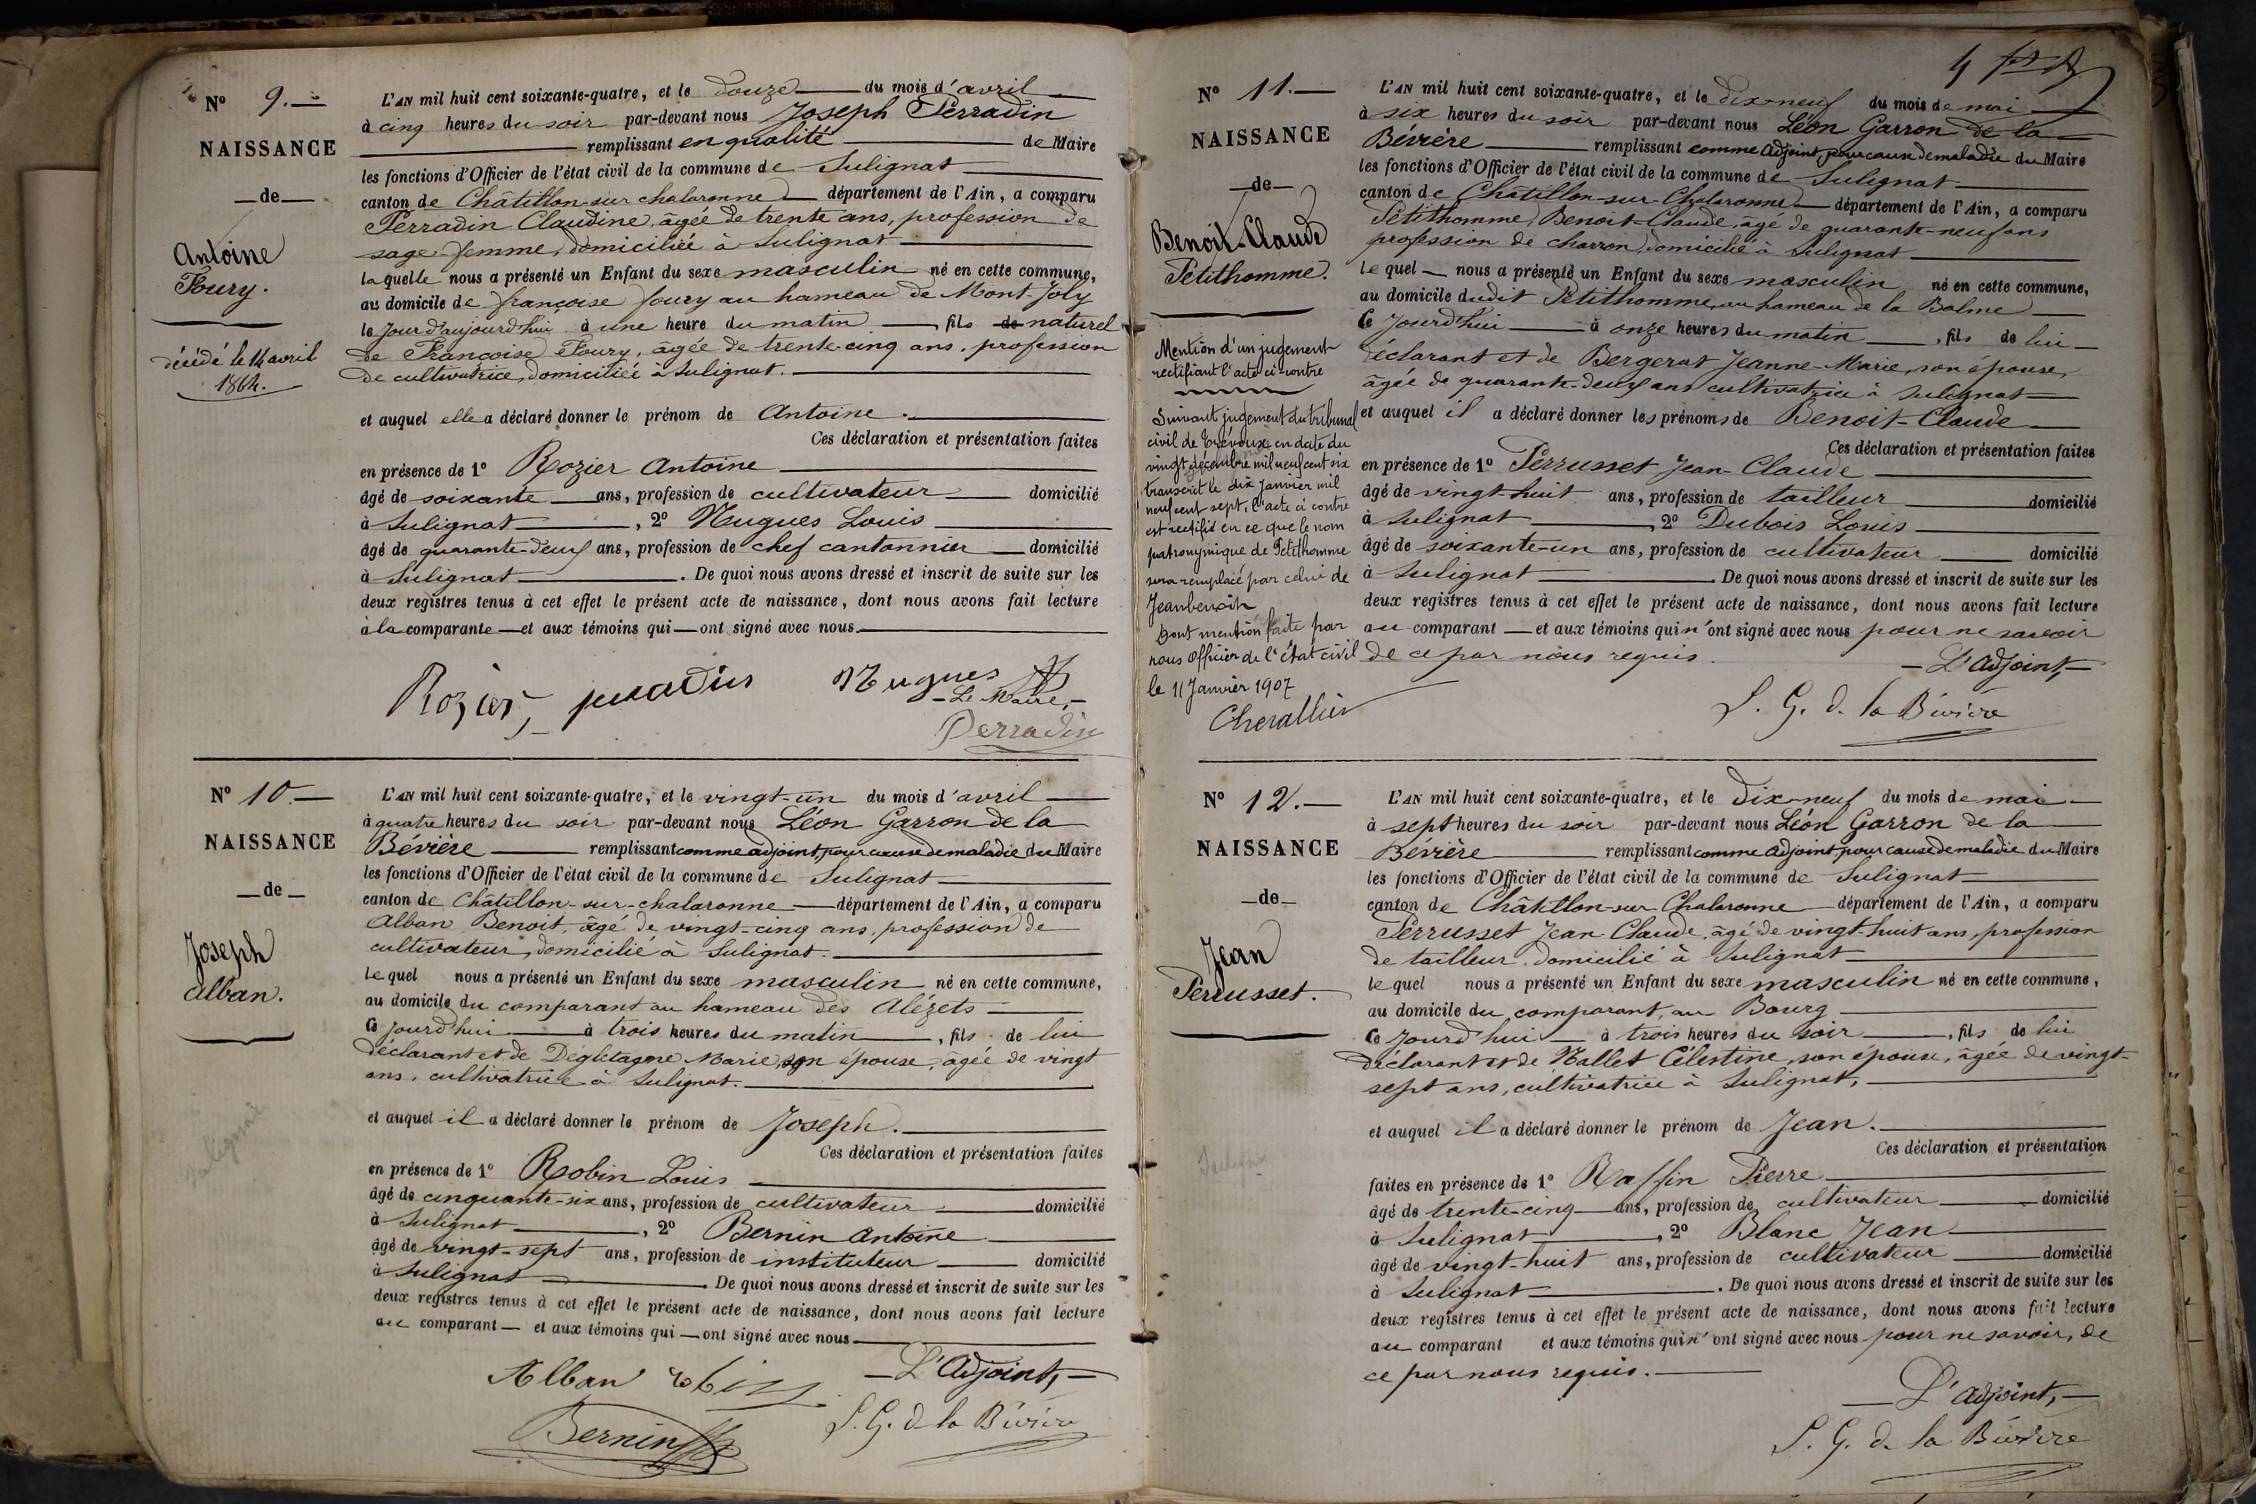 N° 9.
NAISSANCE
de
Antoine
Foury.
décédé le 14 avril
1864.
L'AN mil huit cent soixante-quatre, et le douze du mois d'avril
à cinq heures du soir par-devant nous Joseph Perradin
remplissant en qualité de Maire
les fonctions d'Officier de l'état civil de la commune de Sulignat
canton de Châtillon-sur-chalaronne département de l'Ain, a comparu
Perradin Claudine, âgée de trente ans, profession de
sage-femme, domiciliée à Sulignat
laquelle nous a présenté un Enfant du sexe masculin né en cette commune,
au domicile de françoise foury au hameau de Mont-Joly
le jour d'aujourd'hui à une heure du matin, fils de naturel
de Françoise Foury, âgée de trente-cinq ans, profession
de cultivatrice, domiciliée à Sulignat.
et auquel elle a déclaré donner le prénom de Antoine.
Ces déclaration et présentation faites
en présence de 1° Rozier Antoine
âgé de soixante ans, profession de cultivateur domicilié
à Sulignat, 2° Nugues Louis
âgé de quarante-deux ans, profession de chef cantonnier domicilié
à Sulignat. De quoi nous avons dressé et inscrit de suite sur les
deux registres tenus à cet effet le présent acte de naissance, dont nous avons fait lecture
à la comparante et aux témoins qui ont signé avec nous.
Rozier perradin Nugues
Le Maire,
Perradin
N° 10.
NAISSANCE
de
Joseph
Alban.
L'AN mil huit cent soixante-quatre, et le vingt-un du mois d'avril
à quatre heures du soir par-devant nous Léon Garron de la
Bévière remplissant comme adjoint, pour cause de maladie du Maire
les fonctions d'Officier de l'état civil de la commune de Sulignat
canton de Châtillon-sur-chalaronne département de l'Ain, a comparu
Alban Benoit, âgé de vingt-cinq ans, profession de
cultivateur, domicilié à Sulignat.
lequel nous a présenté un Enfant du sexe masculin né en cette commune,
au domicile du comparant au hameau des Alézets
ce jourd'hui à trois heures du matin, fils de lui
déclarant et de Dégletagne Marie, son épouse, âgée de vingt
ans, cultivatrice à Sulignat.
et auquel il a déclaré donner le prénom de Joseph.
Ces déclaration et présentation faites
en présence de 1° Robin Louis
âgé de cinquante-six ans, profession de cultivateur domicilié
à Sulignat, 2° Bernin Antoine
âgé de vingt-sept ans, profession de instituteur domicilié
à Sulignat. De quoi nous avons dressé et inscrit de suite sur les
deux registres tenus à cet effet le présent acte de naissance, dont nous avons fait lecture
au comparant et aux témoins qui ont signé avec nous
Alban robin L'Adjoint,
Bernin L. G. d. la Bévière
4
N° 11.
NAISSANCE
de
Benoit-Claude
Petithomme.
Mention d'un jugement
rectifiant l'acte ci-contre
Suivant jugement du tribunal
civil de Trévoux en date du
vingt décembre mil neuf cent six
transcrit le dix janvier mil
neuf cent sept, l'acte ci contre
est rectifié en ce que le nom
patronymique de Petithomme
sera remplacé par celui de
Jeanbenoit
Dont mention faite par
nous Officier de l'état civil
le 11 Janvier 1907
Chevallier
L'AN mil huit cent soixante-quatre, et le dix-neuf du mois de mai
à six heures du soir par-devant nous Léon Garron de la
Bévière remplissant comme Adjoint, pour cause de maladie du Maire
les fonctions d'Officier de l'état civil de la commune de Sulignat
canton de Châtillon-sur-Chalaronne département de l'Ain, a comparu
Petithomme Benoit-Claude, âgé de quarante-neuf ans
profession de charron, domicilié à Sulignat
lequel nous a présenté un Enfant du sexe masculin né en cette commune,
au domicile dudit Petithomme, au hameau de la Balme
ce jourd'hui à onze heures du matin, fils de lui
déclarant et de Bergerat Jeanne-Marie, son épouse,
âgée de quarante-deux ans cultivatrice à Sulignat
et auquel il a déclaré donner les prénoms de Benoit-Claude
Ces déclaration et présentation faites
en présence de 1° Perrusset Jean-Claude
âgé de vingt-huit ans, profession de tailleur domicilié
à Sulignat, 2° Dubois Louis
âgé de soixante-un ans, profession de cultivateur domicilié
à Sulignat. De quoi nous avons dressé et inscrit de suite sur les
deux registres tenus à cet effet le présent acte de naissance, dont nous avons fait lecture
au comparant et aux témoins qui n'ont signé avec nous pour ne savoir
de ce par nous requis.
L'Adjoint,
L. G. d. la Bévière
N° 12.
NAISSANCE
de
Jean
Perrusset.
L'AN mil huit cent soixante-quatre, et le dix-neuf du mois de mai
à sept heures du soir par-devant nous Léon Garron de la
Bévière remplissant comme Adjoint pour cause de maladie du Maire
les fonctions d'Officier de l'état civil de la commune de Sulignat
canton de Châtillon-sur-Chalaronne département de l'Ain, a comparu
Perrusset Jean-Claude, âgé de vingt-huit ans, profession
de tailleur, domicilié à Sulignat
lequel nous a présenté un Enfant du sexe masculin né en cette commune,
au domicile du comparant, au Bourg
ce jourd'hui à trois heures du soir, fils de lui
déclarant et de Nallet Célestine, son épouse, âgée de vingt-
sept ans, cultivatrice à Sulignat,
et auquel il a déclaré donner le prénom de Jean.
Ces déclaration et présentation
faites en présence de 1° Raffin Pierre
âgé de trente-cinq ans, profession de cultivateur domicilié
à Sulignat, 2° Blanc Jean
âgé de vingt-huit ans, profession de cultivateur domicilié
à Sulignat. De quoi nous avons dressé et inscrit de suite sur les
deux registres tenus à cet effet le présent acte de naissance, dont nous avons fait lecture
au comparant et aux témoins qui n'ont signé avec nous pour ne savoir, de
ce par nous requis.
L'Adjoint,
L. G. d. la Bévière